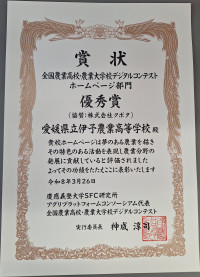 賞状
全国農業高校・農業大学校デジタルコンテスト
ホームページ部門
優秀賞
(協賛:株式会社クボタ)
愛媛県立伊予農業高等学校 殿
貴校ホームページは夢のある農業を描き
その特色のある活動を表現し農業分野の
発展に貢献していると評価されました
よってその功績をたたえここに表彰いたします
令和8年3月26日
慶應義塾大学SFC研究所
アグリプラットフォームコンソーシアム代表
全国農業高校・農業大学校デジタルコンテスト
実行委員長 神成 淳司